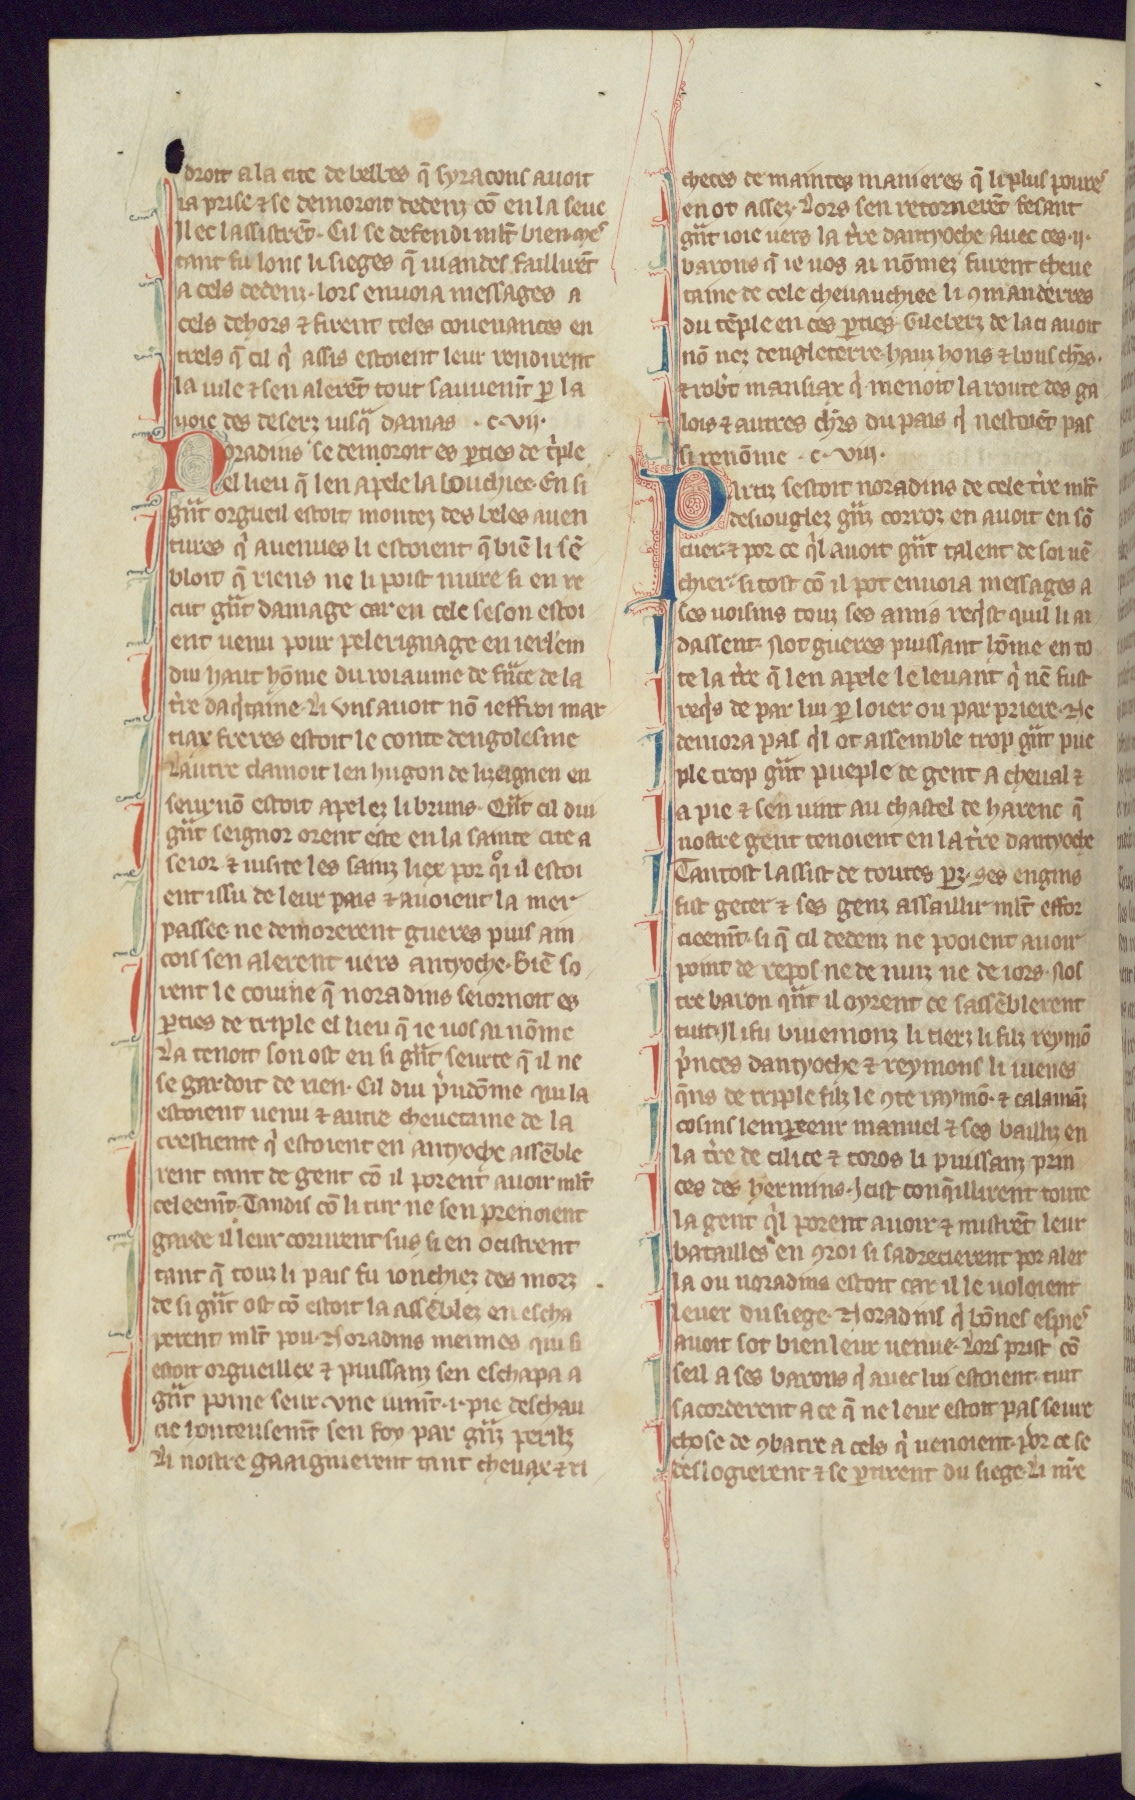 droit a la cite de belbes q̃ syracons auoit
ia prise ⁊ se demoroit dedenz cõ en la seue
Ilec lassistrẽt. Cil se defendi ml̃t bien. mes
tant fu lons li sieges q̃ uiandes faillirẽt
a cels dedenz. lors enuoia messages a
cels dehors ⁊ firent teles couenances en
trels q̃ cil qͥ assis estoient leur rendirent
la uile ⁊ sen alerẽt tout sauuemẽt ꝑ la
uoie des deserz iusqᷓ damas . c. vii.
Noradins se demoroit es ꝑties de tͥple
el lieu q̃ len apele la bouchiee. En si
gᷓnt orgueil estoit montez des beles auen
tures qͥ auenues li estoient q̃ biẽ li sẽ
bloit q̃ riens ne li poist nuire si en re
cut gᷓnt damage car en cele seson estoi
ent uenu pour pelerignage en ierl̃em
dui haut hõme du roiaume de frᷓce de la
tr̃e daqͥtaine. Li vns auoit nõ ieffroi mar
tiax freres estoit le conte dengolesme
Lautre clamoit len hugon de lizeignen en
seurnõ estoit apelez li bruns. Qᷓnt cil dui
gᷓnt seignor orent este en la sainte cite a
seior ⁊ uisite les sainz liex por qͦi il estoi
ent issu de leur pais ⁊ auoient la mer
passee ne demorerent gueres puis ain
cois sen alerent uers antyoche. Biẽ so
rent le couine q̃ noradins seiornoit es
ꝑties de triple el lieu q̃ ie uos ai nõme
La tenoit son ost en si gᷓnt seurte q̃ il ne
se gardoit de rien. Cil dui pͥudõme qui la
estoient uenu ⁊ autre cheuetaine de la
crestiente qͥ estoient en antyoche assẽble
rent tant de gent cõ il porent auoir ml̃t
celeemẽt. Tandis cõ li tur ne sen prenoient
garde il leur corurent sus si en ocistrent
tant q̃ touz li pais fu ionchiez des morz
de si gᷓnt ost cõ estoit la assẽblez en escha
perent ml̃t pou. Noradins meimes qui si
estoit orgueillex ⁊ puissanz sen eschapa a
gᷓnt poine seur vne iumẽt .i. pie deschau
cie honteusemẽt sen foy par gᷓnz perilz
Li nostre gaaignierent tant cheuax ⁊ ri
checes de maintes manieres q̃ li plus poures
en ot assez. Lors sen retornerẽt fesant
gᷓnt ioie uers la tr̃re dantyoche auec ces .ii.
barons q̃ ie uos ai nõmez furent cheue
taine de cele cheuauchiee li ꝯmanderres
du tẽple en ces ꝑties. Gileberz de laci auoit
nõ nez dengleterre. hauz hons ⁊ bons chr̃s.
⁊ rob̃t mansiax qͥ menoit la route des ga
lois ⁊ autres chr̃s du pais qͥ nestoiẽt pas
si renõme . c. viii.
Partiz sestoit noradins de cele tr̃re ml̃t
desiouglez gᷓnz corroz en auoit en sõ
cuer. ⁊ por ce qͥl auoit gᷓnt talent de soi uẽ
chier. si tost cõ il pot enuoia messages a
ses uoisins touz ses amis reqͥst quil li ai
dassent. Not gueres puissant hõme en to
te la tr̃re q̃ len apele le leuant qͥ nẽ fust
reqͥs de par lui ꝑ loier ou par priere. Ne
demora pas qͥl ot assemble trop gᷓnt pue
ple trop gᷓnt pueple de gent a cheual ⁊
a pie ⁊ sen uint au chastel de harenc q̃
nostre gent tenoient en la tr̃re dantyoche
Tantost lassist de toutes parz. ses engins
fist geter ⁊ ses genz assaillir ml̃t effor
cieemẽt. si q̃ cil dedenz ne pooient auoir
point de repos ne de nuiz ne de iors. Nos
tre baron qᷓnt il oyrent ce sassẽblerent
tuit. Il i fu buiemonz li tierz li filz reymõ
pͥnces dantyoche ⁊ reymons li iuenes
q̃ns de triple filz le ꝯte raymõ. ⁊ calamãz
cosins lempereeur manuel ⁊ ses bailliz en
la tr̃re de cilice ⁊ toros li puissanz prin
ces des hermins. Icist conq̃illirent toute
la gent qͥl porent auoir ⁊ mistrẽt leur
batailles en ꝯroi si sadrecierent por aler
la ou noradins estoit car il le uoloient
leuer du siege. Noradins qͥ bõnes espies
auoit sot bien leur uenue. Lors prist cõ
seil a ses barons qͥ auec lui estoient. tuit
sacorderent a ce q̃ ne leur estoit pas seure
chose de ꝯbatre a cels qͥ uenoient. por ce se
deslogierent ⁊ se ꝑtirent du siege. Li nr̃e